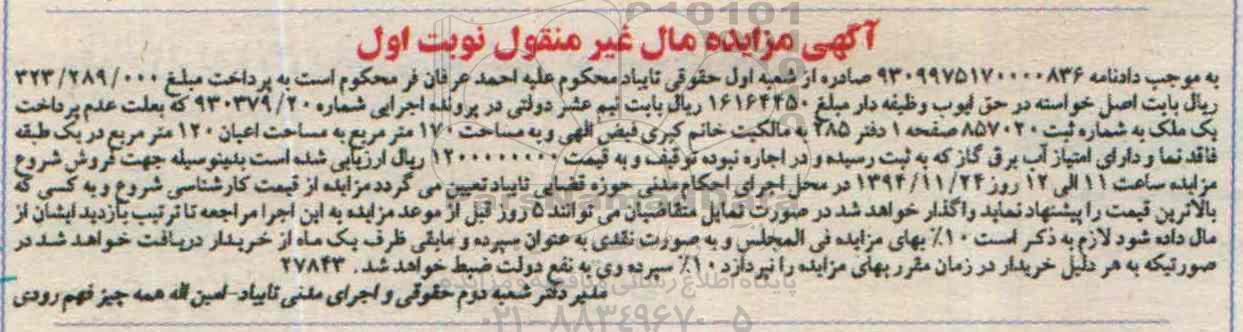 آگهی مزایده مال غیر منقول نوبت اول
به موجب دادنامه ۹۳۰۹۹۷۵۱۷۰۰۰۰۸۳۶ صادره از شعبه اول حقوقی تایباد محکوم علیه احمد عرفان فر محکوم است به پرداخت مبلغ ۳۲۳/۲۸۹/۰۰۰
ریال بابت اصل خواسته در حق ایوب وظیفه دار مبلغ ۱۶۱۶۴۴۵۰ ریال بابت نیم عشر دولتی در پرونده اجرایی شماره ۹۳۰۳۷۹/۲۰ که بعلت عدم پرداخت
یک ملک به شماره ثبت ۸۵۷۰۲۰ صفحه ۱ دفتر ۲۸۵ به مالکیت خانم کبری فیض الهی و به مساحت ۱۷۰ متر مربع به مساحت اعیان ۱۲۰ متر مربع در یک طبقه
فاقد نما و دارای امتیاز آب برق گاز که به ثبت رسیده و در اجاره نبوده توقیف و به قیمت ۱۲۰۰۰۰۰۰۰۰ ریال ارزیابی شده است بدینوسیله جهت فروش شروع
مزایده ساعت ۱۱ الی ۱۲ روز ۱۳۹۴/۱۱/۲۴ در محل اجرای احکام مدنی حوزه قضایی تایباد تعیین می گردد مزایده از قیمت کارشناسی شروع و به کسی که
بالاترین قیمت را پیشنهاد نماید واگذار خواهد شد در صورت تمایل متقاضیان می توانند ۵ روز قبل از موعد مزایده به این اجرا مراجعه تا ترتیب بازدید ایشان از
مال داده شود لازم به ذکر است ۱۰٪ بهای مزایده فی المجلس و به صورت نقدی به عنوان سپرده و مابقی ظرف یک ماه از خریدار دریافت خواهد شد در
صورتیکه به هر دلیل خریدار در زمان مقرر بهای مزایده را نپردازد ۱۰٪ سپرده وی به نفع دولت ضبط خواهد شد. ۲۷۸۴۳
مدیر دفتر شعبه دوم حقوقی و اجرای مدنی تایباد-امین الله همه چیز فهم رودی
ParsNamadData
۰۲۱-۸۸۳۴۹۶۷۰-۵